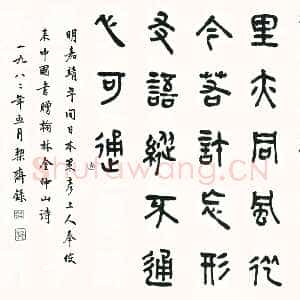 里亦同風從
今若計忘形
友語縱不通
心可通
明嘉靖年間日本策彥上人奉使
来中國書贈翰林金仲山詩
一九八二年五月契齋錄
Shufawang.CN